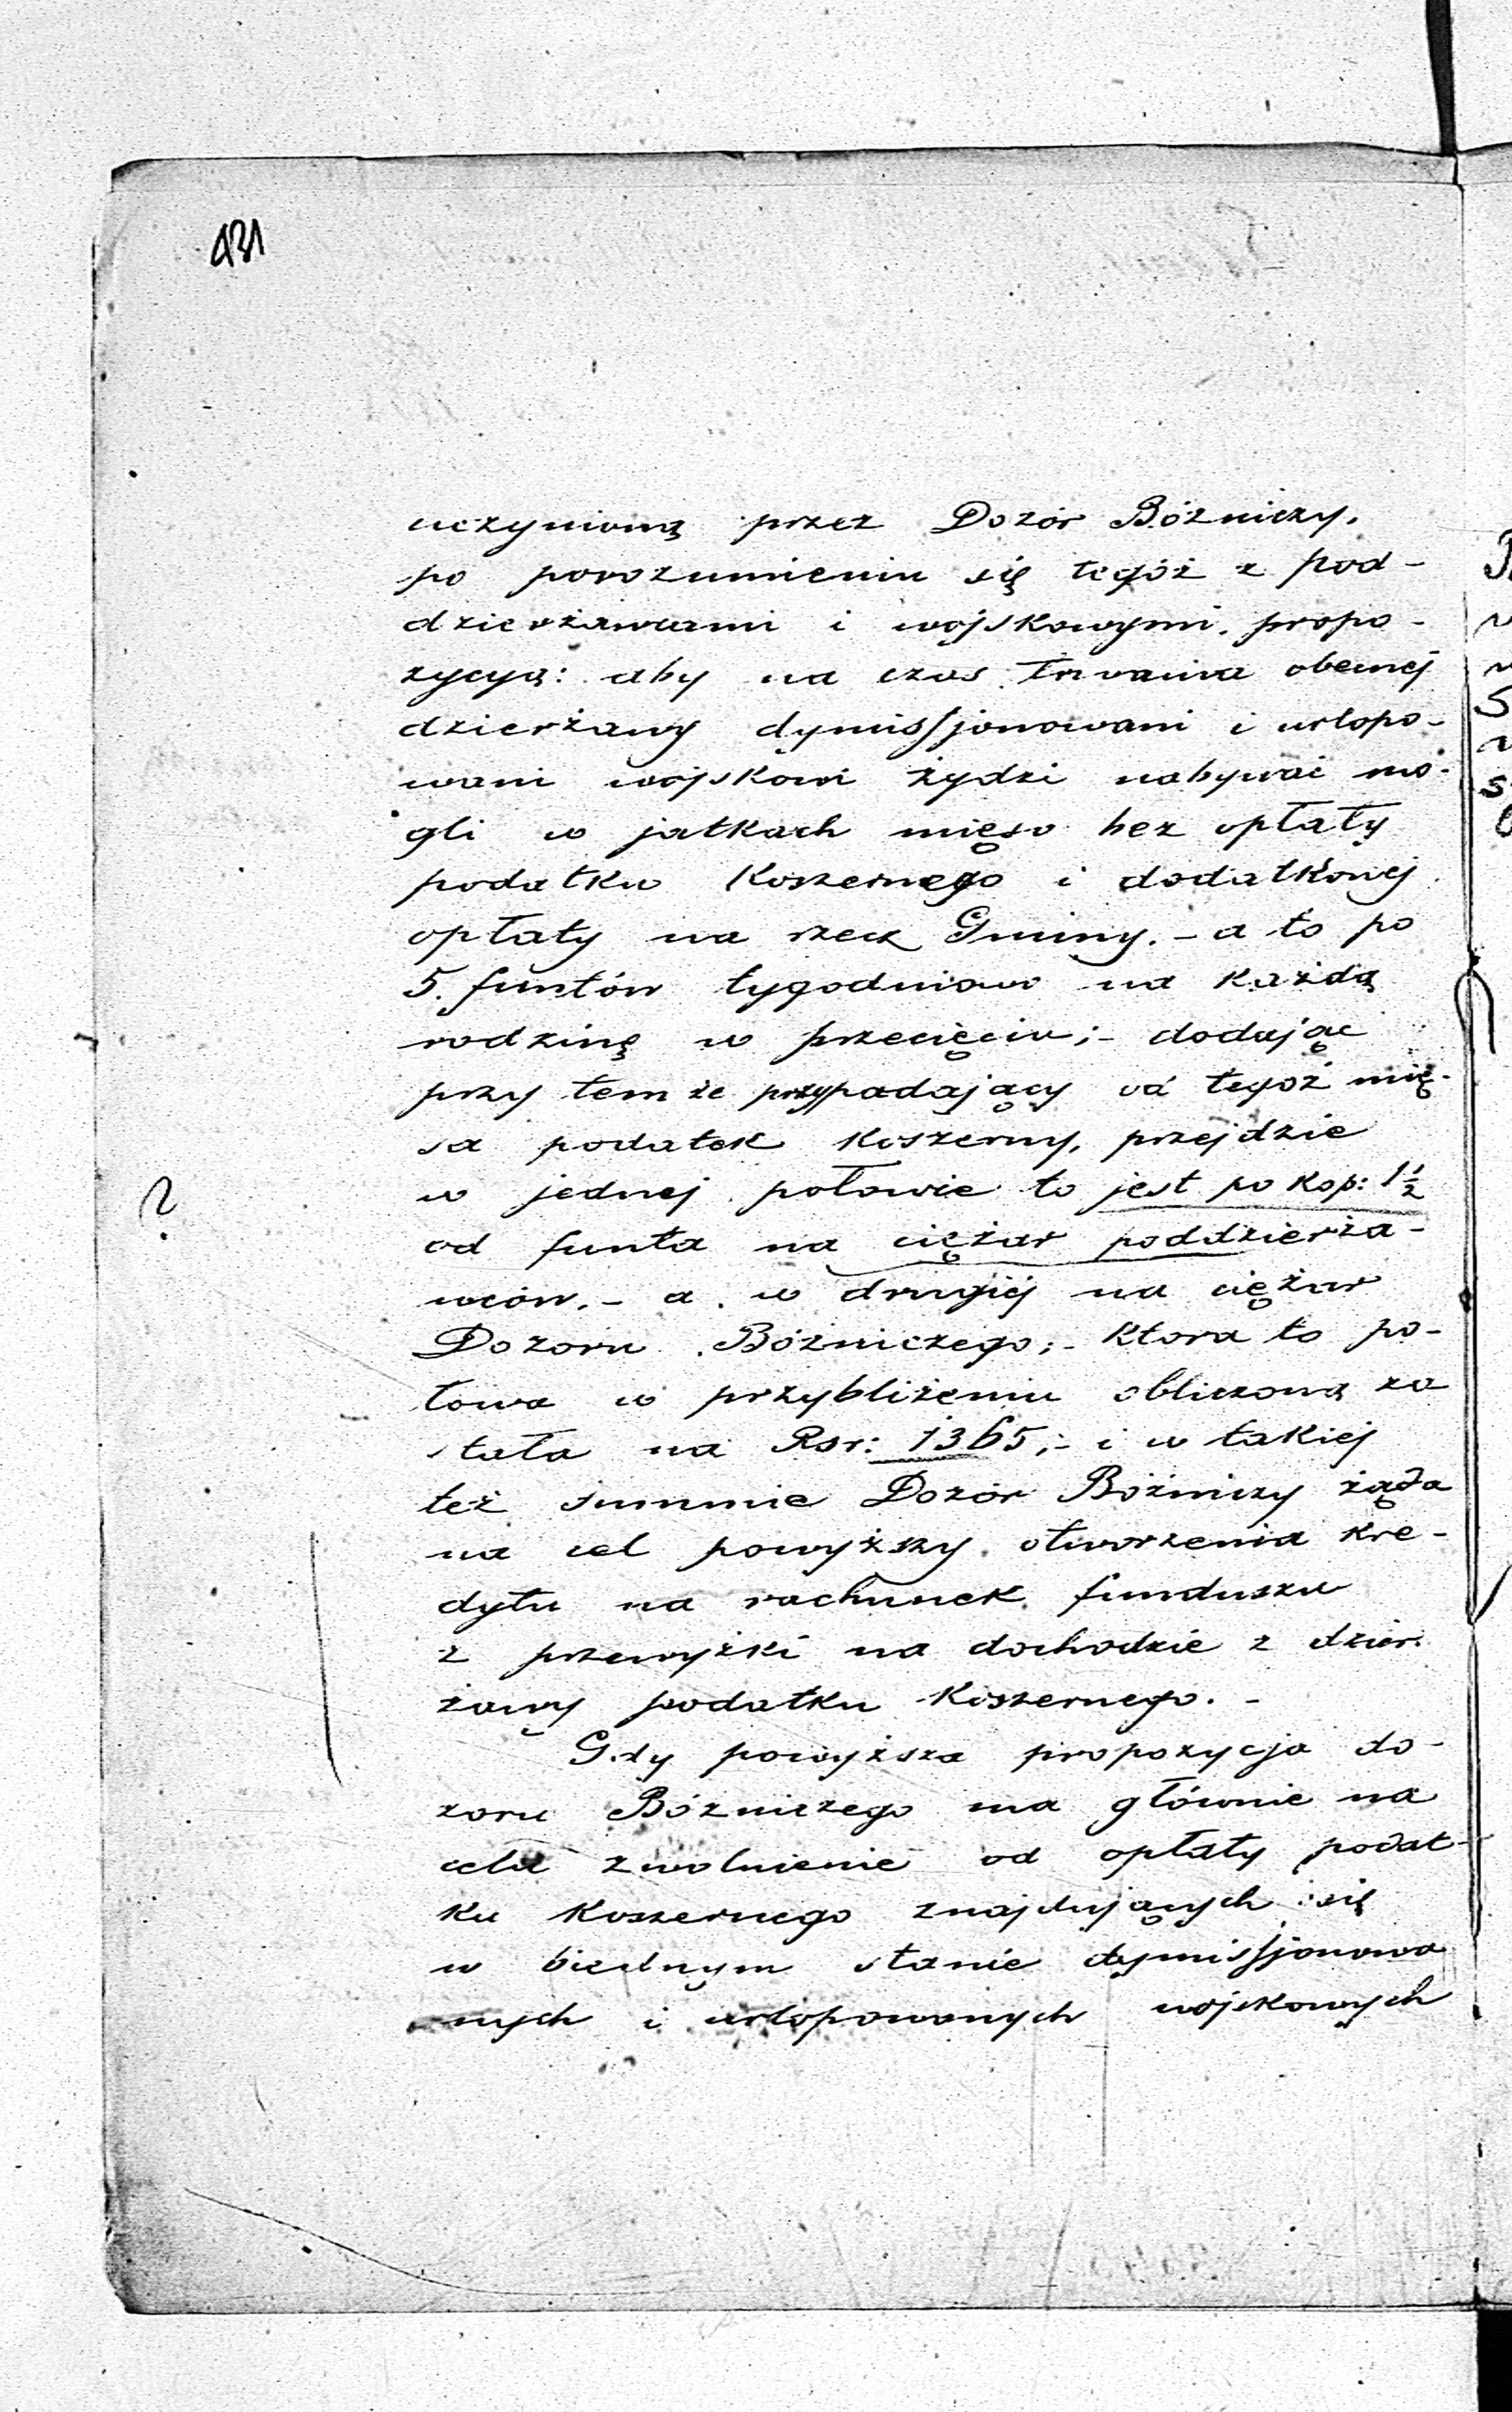 431
uczynioną przez Dozór Bóżniczy,
po porozumieniu się tegóż z pod-
dzierżawcami i wojskowymi, propo-
zycyą: aby na czas trwania obecnej
dzierżawy dymissjonowani i urlopo-
wani wojskowi żydzi nabywać mo-
gli w jatkach mięso bez opłaty
podatku Koszernego i dodatkowej
opłaty na rzecz Gminy. - a to po
5. funtów tygodniowo na każdą
rodzinę w przecięciu; - dodając
przy tem że przypadający od tegoż mię-
sa podatek koszerny, przejdzie
w jednej połowie to jest po kop: 1½
?
od funta na ciężar poddzierża-
wców. - a w drugiéj na ciężar
Dozoru Bóżniczego; - ktora to po-
łowa w przybliżeniu obliczoną zo
stała na Rsr: 1365; - i w takiej
też summie Dozór Bóżniczy żąda
na cel powyższy otworzenia kre-
dytu na rachunek funduszu
z przewyżki na dochodzie z dzier-
żawy podatku Koszernego. -
Gdy powyższa propozycja do-
zoru Bóżniczego ma głównie na
celu zwolnienie od opłaty podat-
ku Koszernego znajdujących się
w biednym stanie dymissjonowa
nych i urlopowanych wojskowych